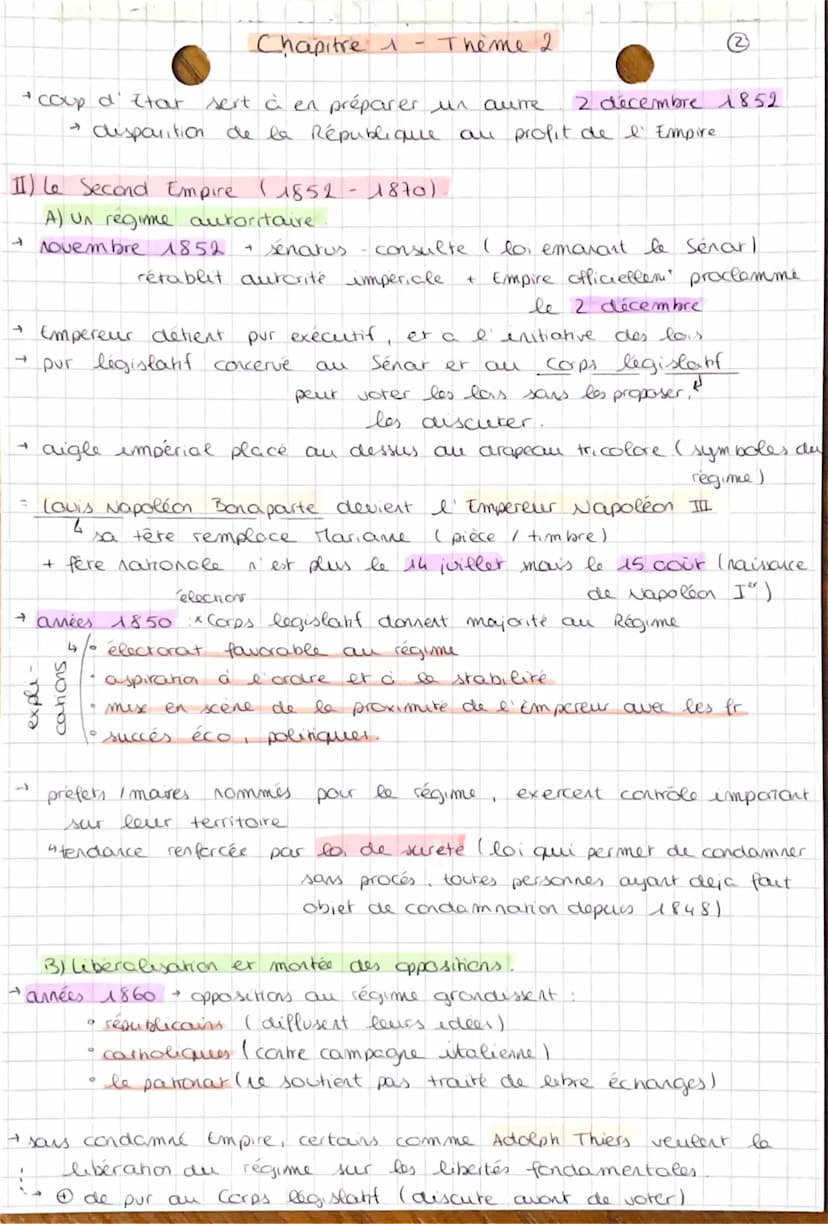 Chapitre 1 - Thème 2
2
→ coup d'Etat sert à en préparer un autre 2 décembre 1852
→ disparition de la République au profit de l'Empire
II) Le Second Empire (1852 - 1870)
A) Un régime autoritaire
→ novembre 1852 → sénatus-consulte (loi emanant le Sénat)
rétablit autorité impériale + Empire officiellem' proclammé
le 2 décembre
→ Empereur détient pvr exécutif, et a l'initiative des lois
→ pvr législatif concervé au Sénat et au Corps législatif
peut voter les lois sans les proposer,
les discuter.
→ aigle impérial placé au dessus du drapeau tricolore (symboles du
régime)
= Louis Napoléon Bonaparte devient l'Empereur Napoléon III
↳ sa tête remplace Marianne (pièce / timbre)
+ fête nationale n'est plus le 14 juillet mais le 15 août (naissance
de Napoléon Ier)
élections
→ années 1850 : × Corps legislatif donnent majorité au Régime
↳ • électorat favorable au régime
• aspiration à l'ordre et à la stabilité
expli-
cations
• mise en scène de la proximité de l'Empereur avec les fr
• succés éco, politiques.
→ préfets / maires nommés pour le régime, exercent contrôle important
sur leur territoire
↳ tendance renforcée par loi de sureté (loi qui permet de condamner
sans procés, toutes personnes ayant deja fait
objet de condamnation depuis 1848)
B) Libéralisation et montée des oppositions.
→ années 1860 → oppositions au régime grandissent :
• républicains (diffusent leurs idées)
• catholiques (contre campagne italienne)
• le patronat (ne soutient pas traité de libre échanges)
→ sans condamné Empire, certains comme Adolph Thiers veulent la
libération du régime sur les libertés fondamentales.
→ ⊕ de pvr au Corps législatif (discute avant de voter)